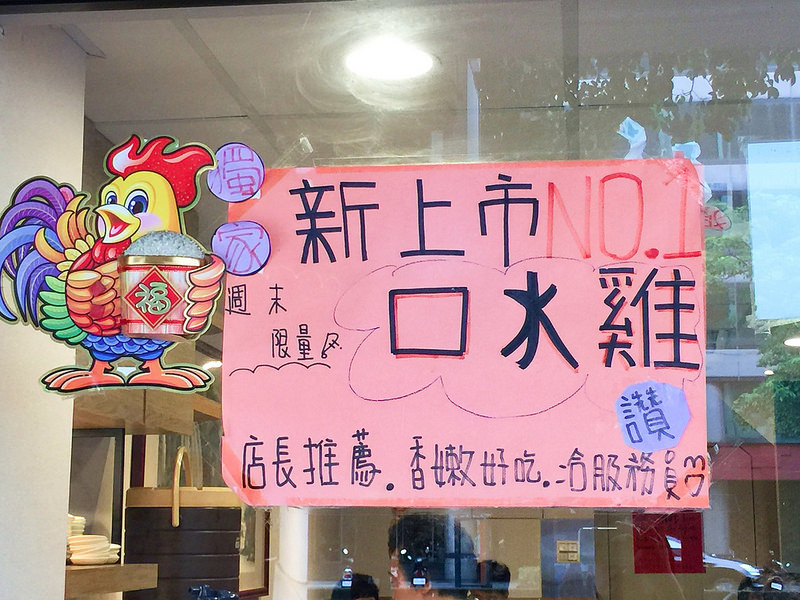 獨家
新上市NO.1
週末
限量
口水雞
讚
店長推薦.香嫩好吃.洽服務員
福